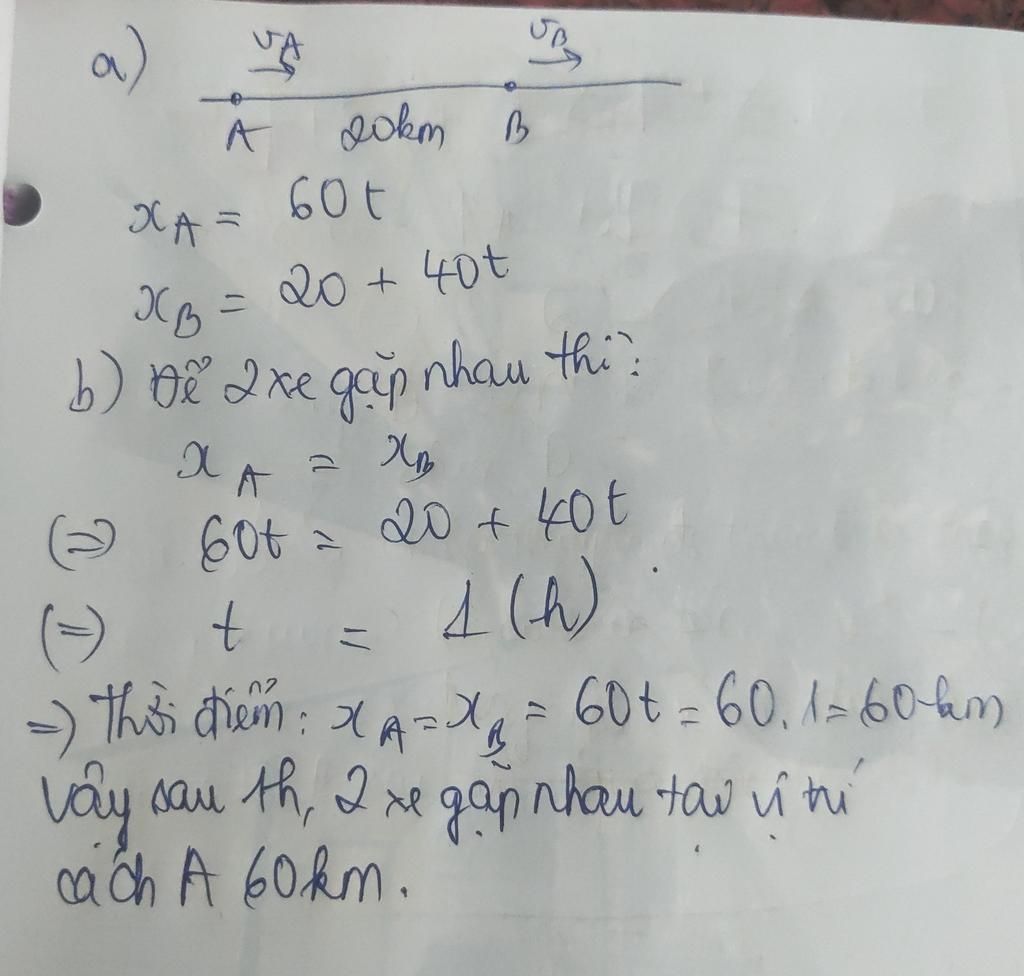 a) vA vB
A 20km B
xA = 60t
xB = 20 + 40t
b) Để 2 xe gặp nhau thì:
xA = xB
(=) 60t = 20 + 40t
(=) t = 1 (h)
=) Thời điểm: xA = xB = 60t = 60.1 = 60km
Vậy sau 1h, 2 xe gặp nhau tại vị trí
cách A 60km.